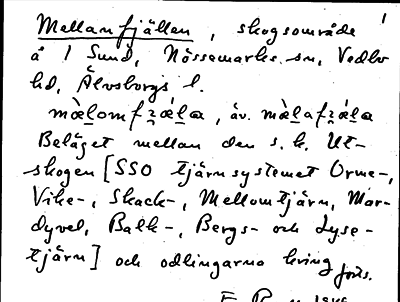 1
Mellanfjällen, skogsområde
å 1 Sund, Nössemarks sn, Vedbo
hd, Älvsborgs l.
Beläget mellan den s.k. Ut-
skogen [SSO tjärnsystemet Orme-,
Vike-, Skack-, Mellomtjärn, Mar-
dyvel, Balk-, Bergs- och Lyse-
tjärn] och odlingarna kring
forts.